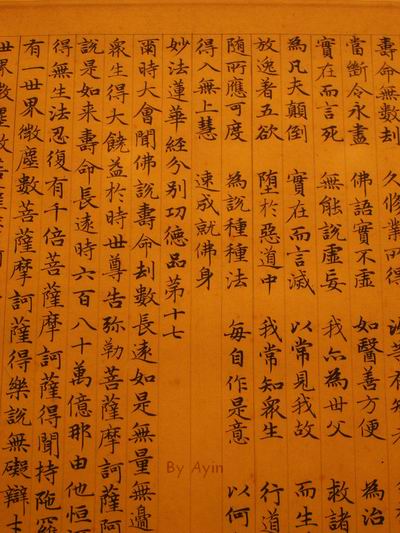 壽命無數刧 久修業所得 等有
當斷令永盡 佛語實不虛 如醫善方便 為治
實在而言死 無能說虛妄 我亦為世父 救諸
為凡夫顛倒 實在而言滅 以常見我故 而生
放逸著五欲 墮於惡道中 我常知衆生 行道
随所應可度 為說種種法 每自作是意 以何
得入無上慧 速成就佛身
妙法蓮華經分别功德品第十七
爾時大會聞佛說壽命刧數長遠如是無量無邊
衆生得大饒益於時世尊告弥勒菩薩摩訶薩阿
說是如来壽命長遠時六百八十萬億那由他恒河
得無生法忍復有千倍菩薩摩訶薩得聞持陁羅
有一世界微塵數菩薩摩訶薩得樂說無礙辯才
世界微塵數菩薩摩訶
By Ayin